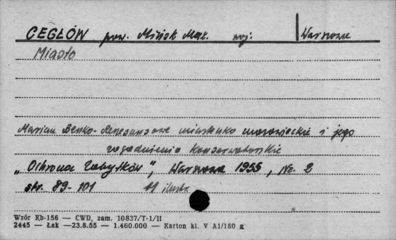 CEGŁÓW pow. Mińsk Maz. woj. Warszawa
Miasto
Marian Benko - miasteczko mazowieckie i jego
zagadnienia konserwatorskie
„Ochrona Zabytków", Warszawa 1955, Nr. 2
str. 89-101 11 ilustr.
Wzór Kb-156 — CWD, zam. 10837/T-1/II
2445 — Łak —23.8.55 — 1.460.000 — Karton kl. V A1/180 g